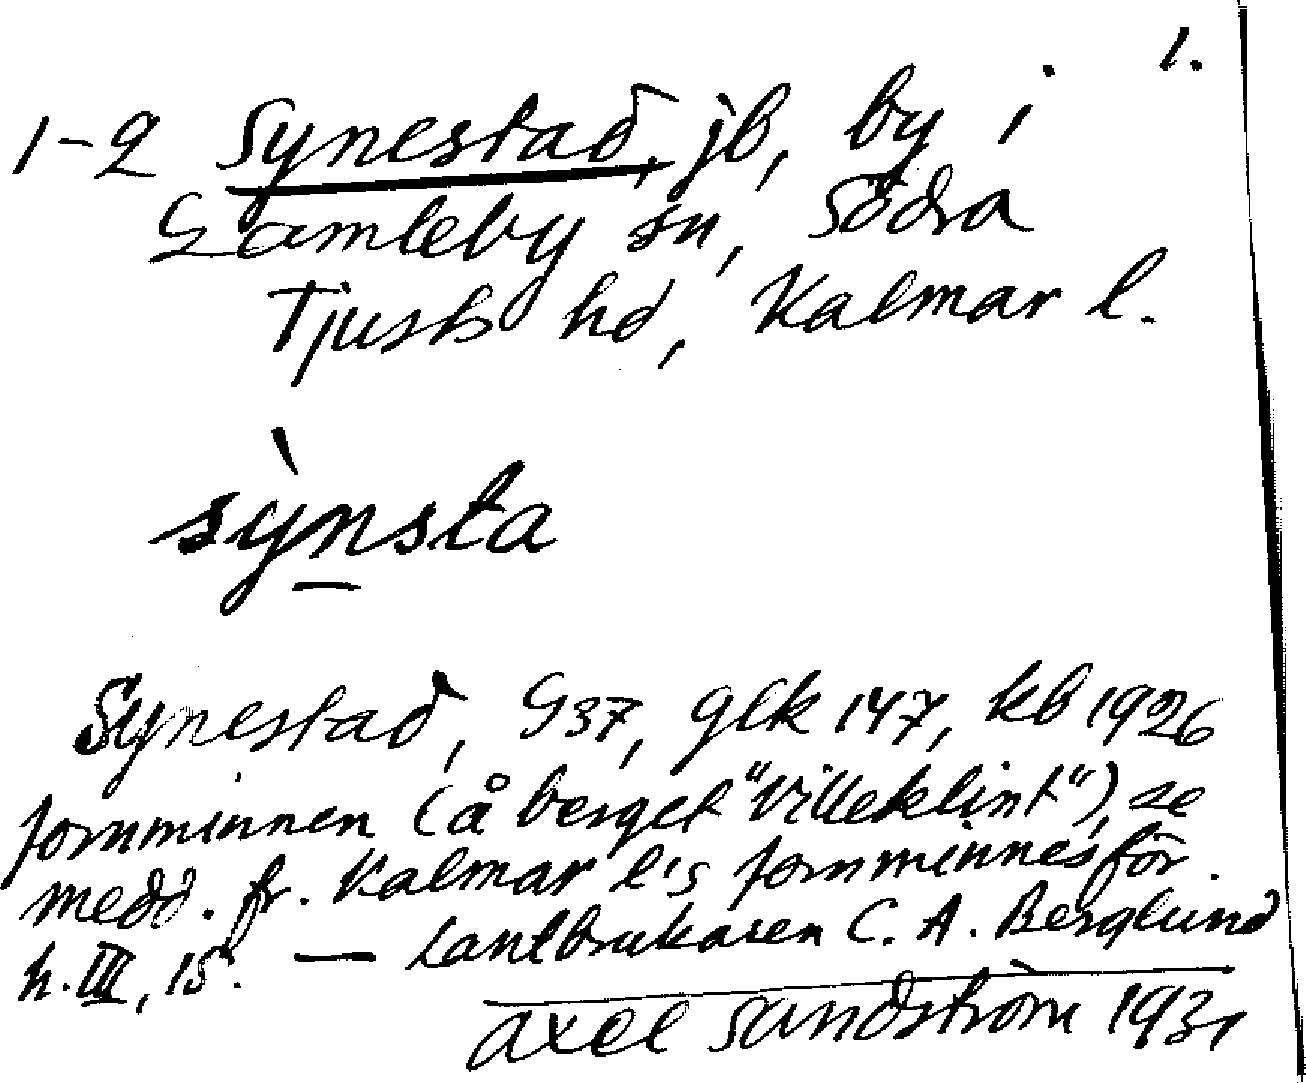 1.
1-2 Synestad, jb, by i
Gamleby sn, Södra
Tjusts hd, Kalmar l.
sỳnsta
Synestad, G37, glk 147, kb 1926
fornminnen (å berget "Villeklint"), se
medd. fr. Kalmar l:s fornminnesför.
h. III, 15. — Lantbrukaren C. A. Berglund
Axel Sandström 1931